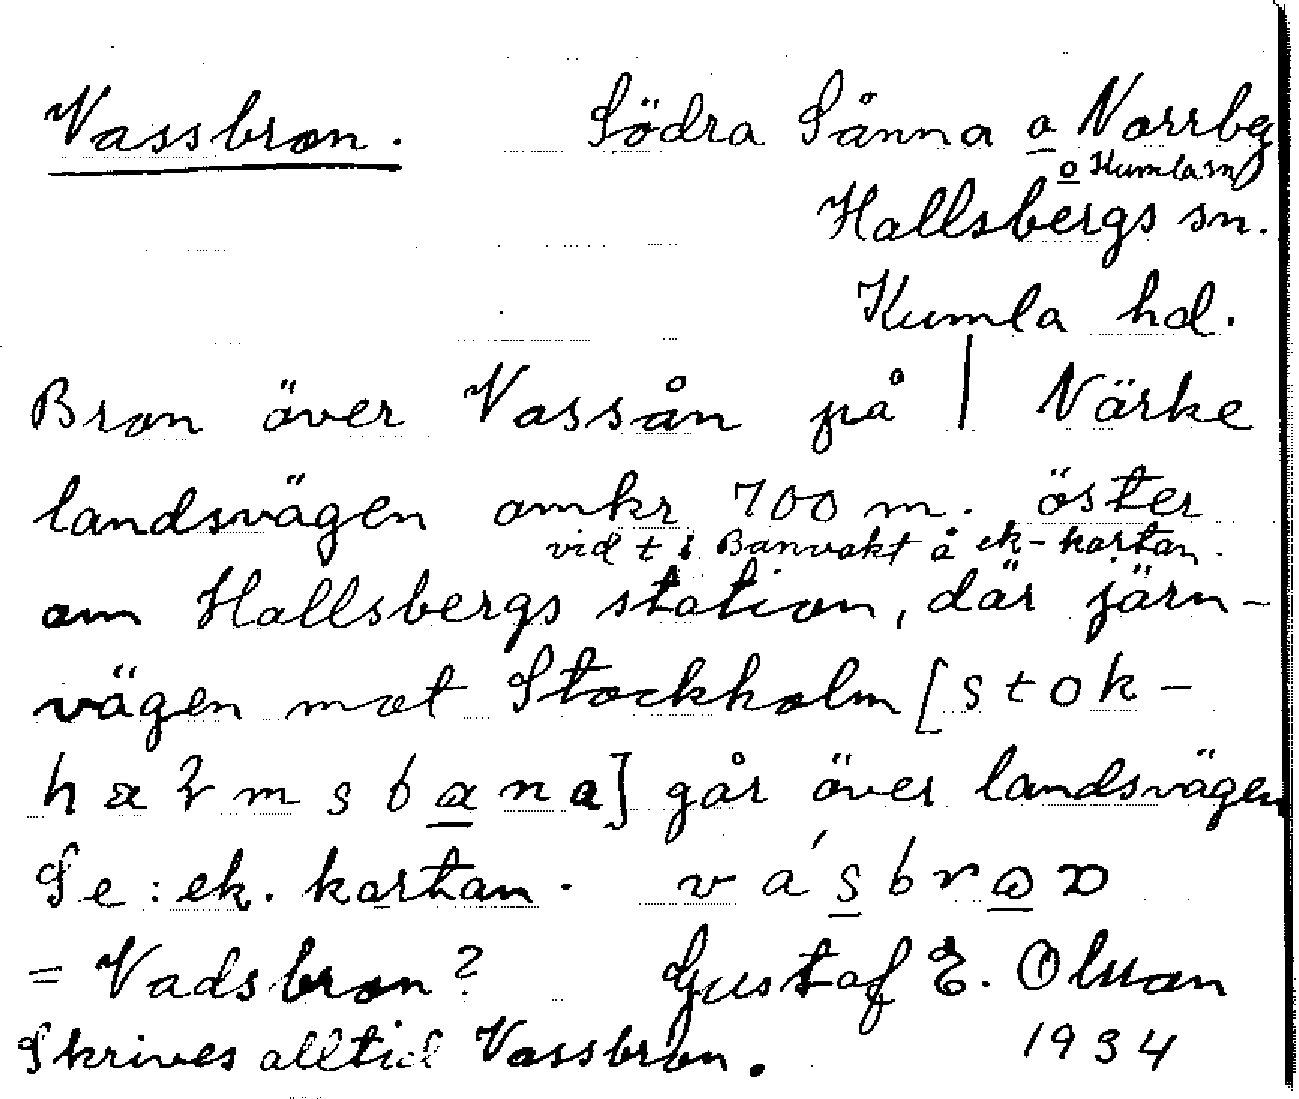 Vassbron. Södra Sånna o Norrby
o Kumla sn)
Hallsbergs sn.
Kumla hd.
Bron över Vassån på | Närke
landsvägen omkr 700 m. öster
vid t i Banvakt å ek-kartan.
om Hallsbergs station, där järn-
vägen mot Stockholm [stok-
går över landsvägen
Se: ek. kartan.
= Vadsbron? Gustaf E. Olson
Skrives alltid Vassbron. 1934